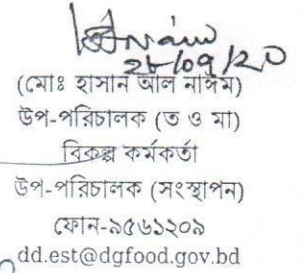 28/09/20
(মোঃ হাসান আল নাঈম)
উপ-পরিচালক (ত ও মা)
বিকল্প কর্মকর্তা
উপ-পরিচালক (সংস্থাপন)
ফোন-৯৫৬১২০৯
dd.est@dgfood.gov.bd